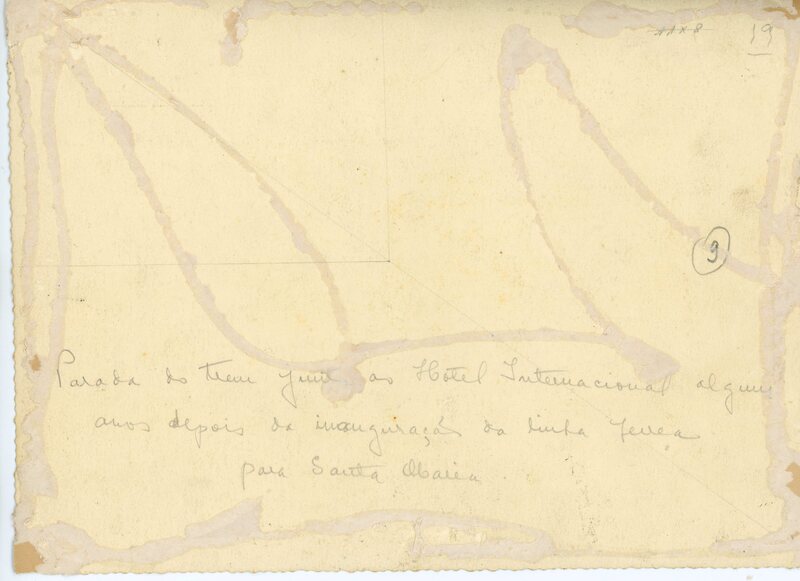 11x8 19
9
Parada do trem junto ao Hotel Internacional alguns
anos depois da inauguração da linha ferrea
para Santa Maria.